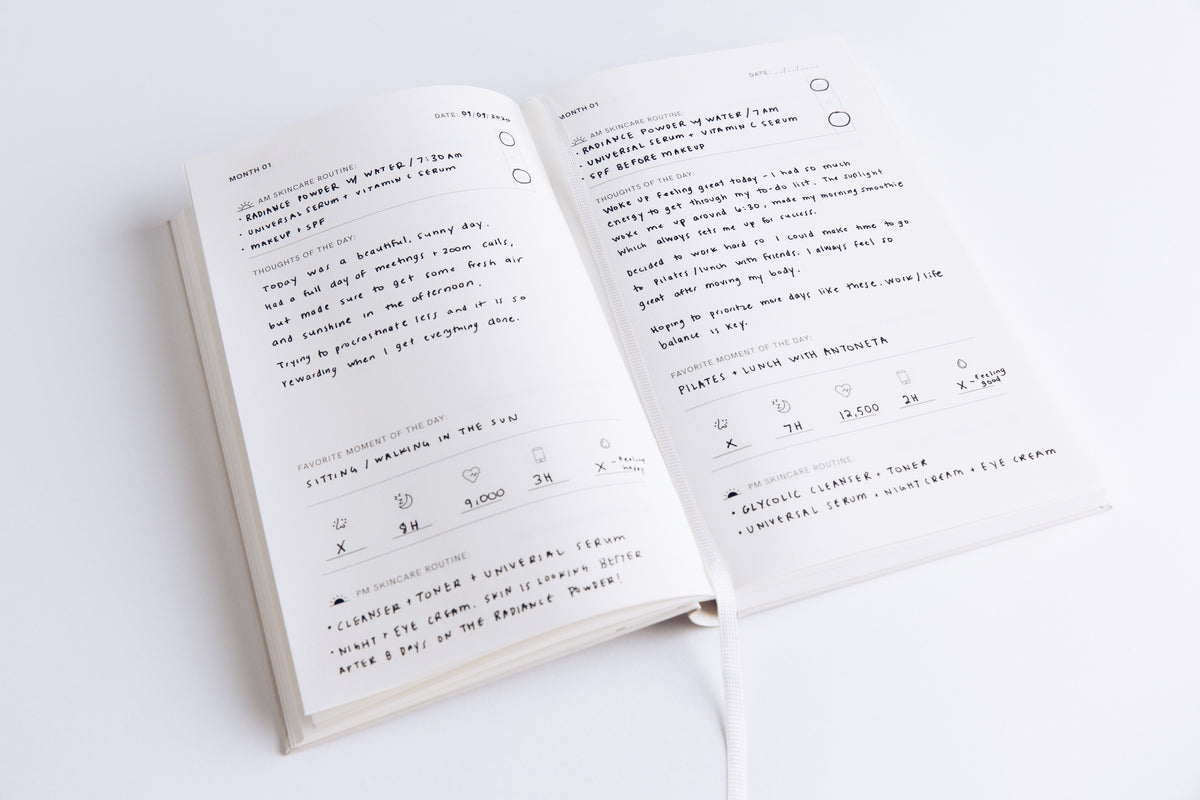 DATE: 09/09/2020
MONTH 01
AM SKINCARE ROUTINE:
• RADIANCE POWDER W/ WATER / 7:30AM
• UNIVERSAL SERUM + VITAMIN C SERUM
• MAKEUP + SPF
THOUGHTS OF THE DAY:
TODAY was a beautiful, sunny day.
Had a full day of meetings + zoom calls,
but made sure to get some fresh air
and sunshine in the afternoon.
Trying to procrastinate less and it is so
rewarding when I get everything done.
FAVORITE MOMENT OF THE DAY:
SITTING / WALKING IN THE SUN
X
8H
9,000
3H
X - feeling
happy
PM SKINCARE ROUTINE:
• CLEANSER + TONER + UNIVERSAL SERUM
• NIGHT + EYE CREAM. SKIN IS LOOKING BETTER
AFTER 8 DAYS ON THE RADIANCE POWDER!
DATE:
MONTH 01
AM SKINCARE ROUTINE:
• RADIANCE POWDER W/ WATER / 7AM
• UNIVERSAL SERUM + VITAMIN C SERUM
• SPF BEFORE MAKEUP
THOUGHTS OF THE DAY:
Woke up feeling great today - I had so much
energy to get through my to-do list. The sunlight
woke me up around 6:30, made my morning smoothie
which always sets me up for success.
Decided to work hard so I could make time to go
to Pilates / lunch with friends. I always feel so
great after moving my body.
Hoping to prioritze more days like these. Work / life
balance is key.
FAVORITE MOMENT OF THE DAY:
PILATES + LUNCH WITH ANTONETA
X
7H
12,500
2H
X - feeling
good
PM SKINCARE ROUTINE
• GLYCOLIC CLEANSER + TONER
• UNIVERSAL SERUM + NIGHT CREAM + EYE CREAM